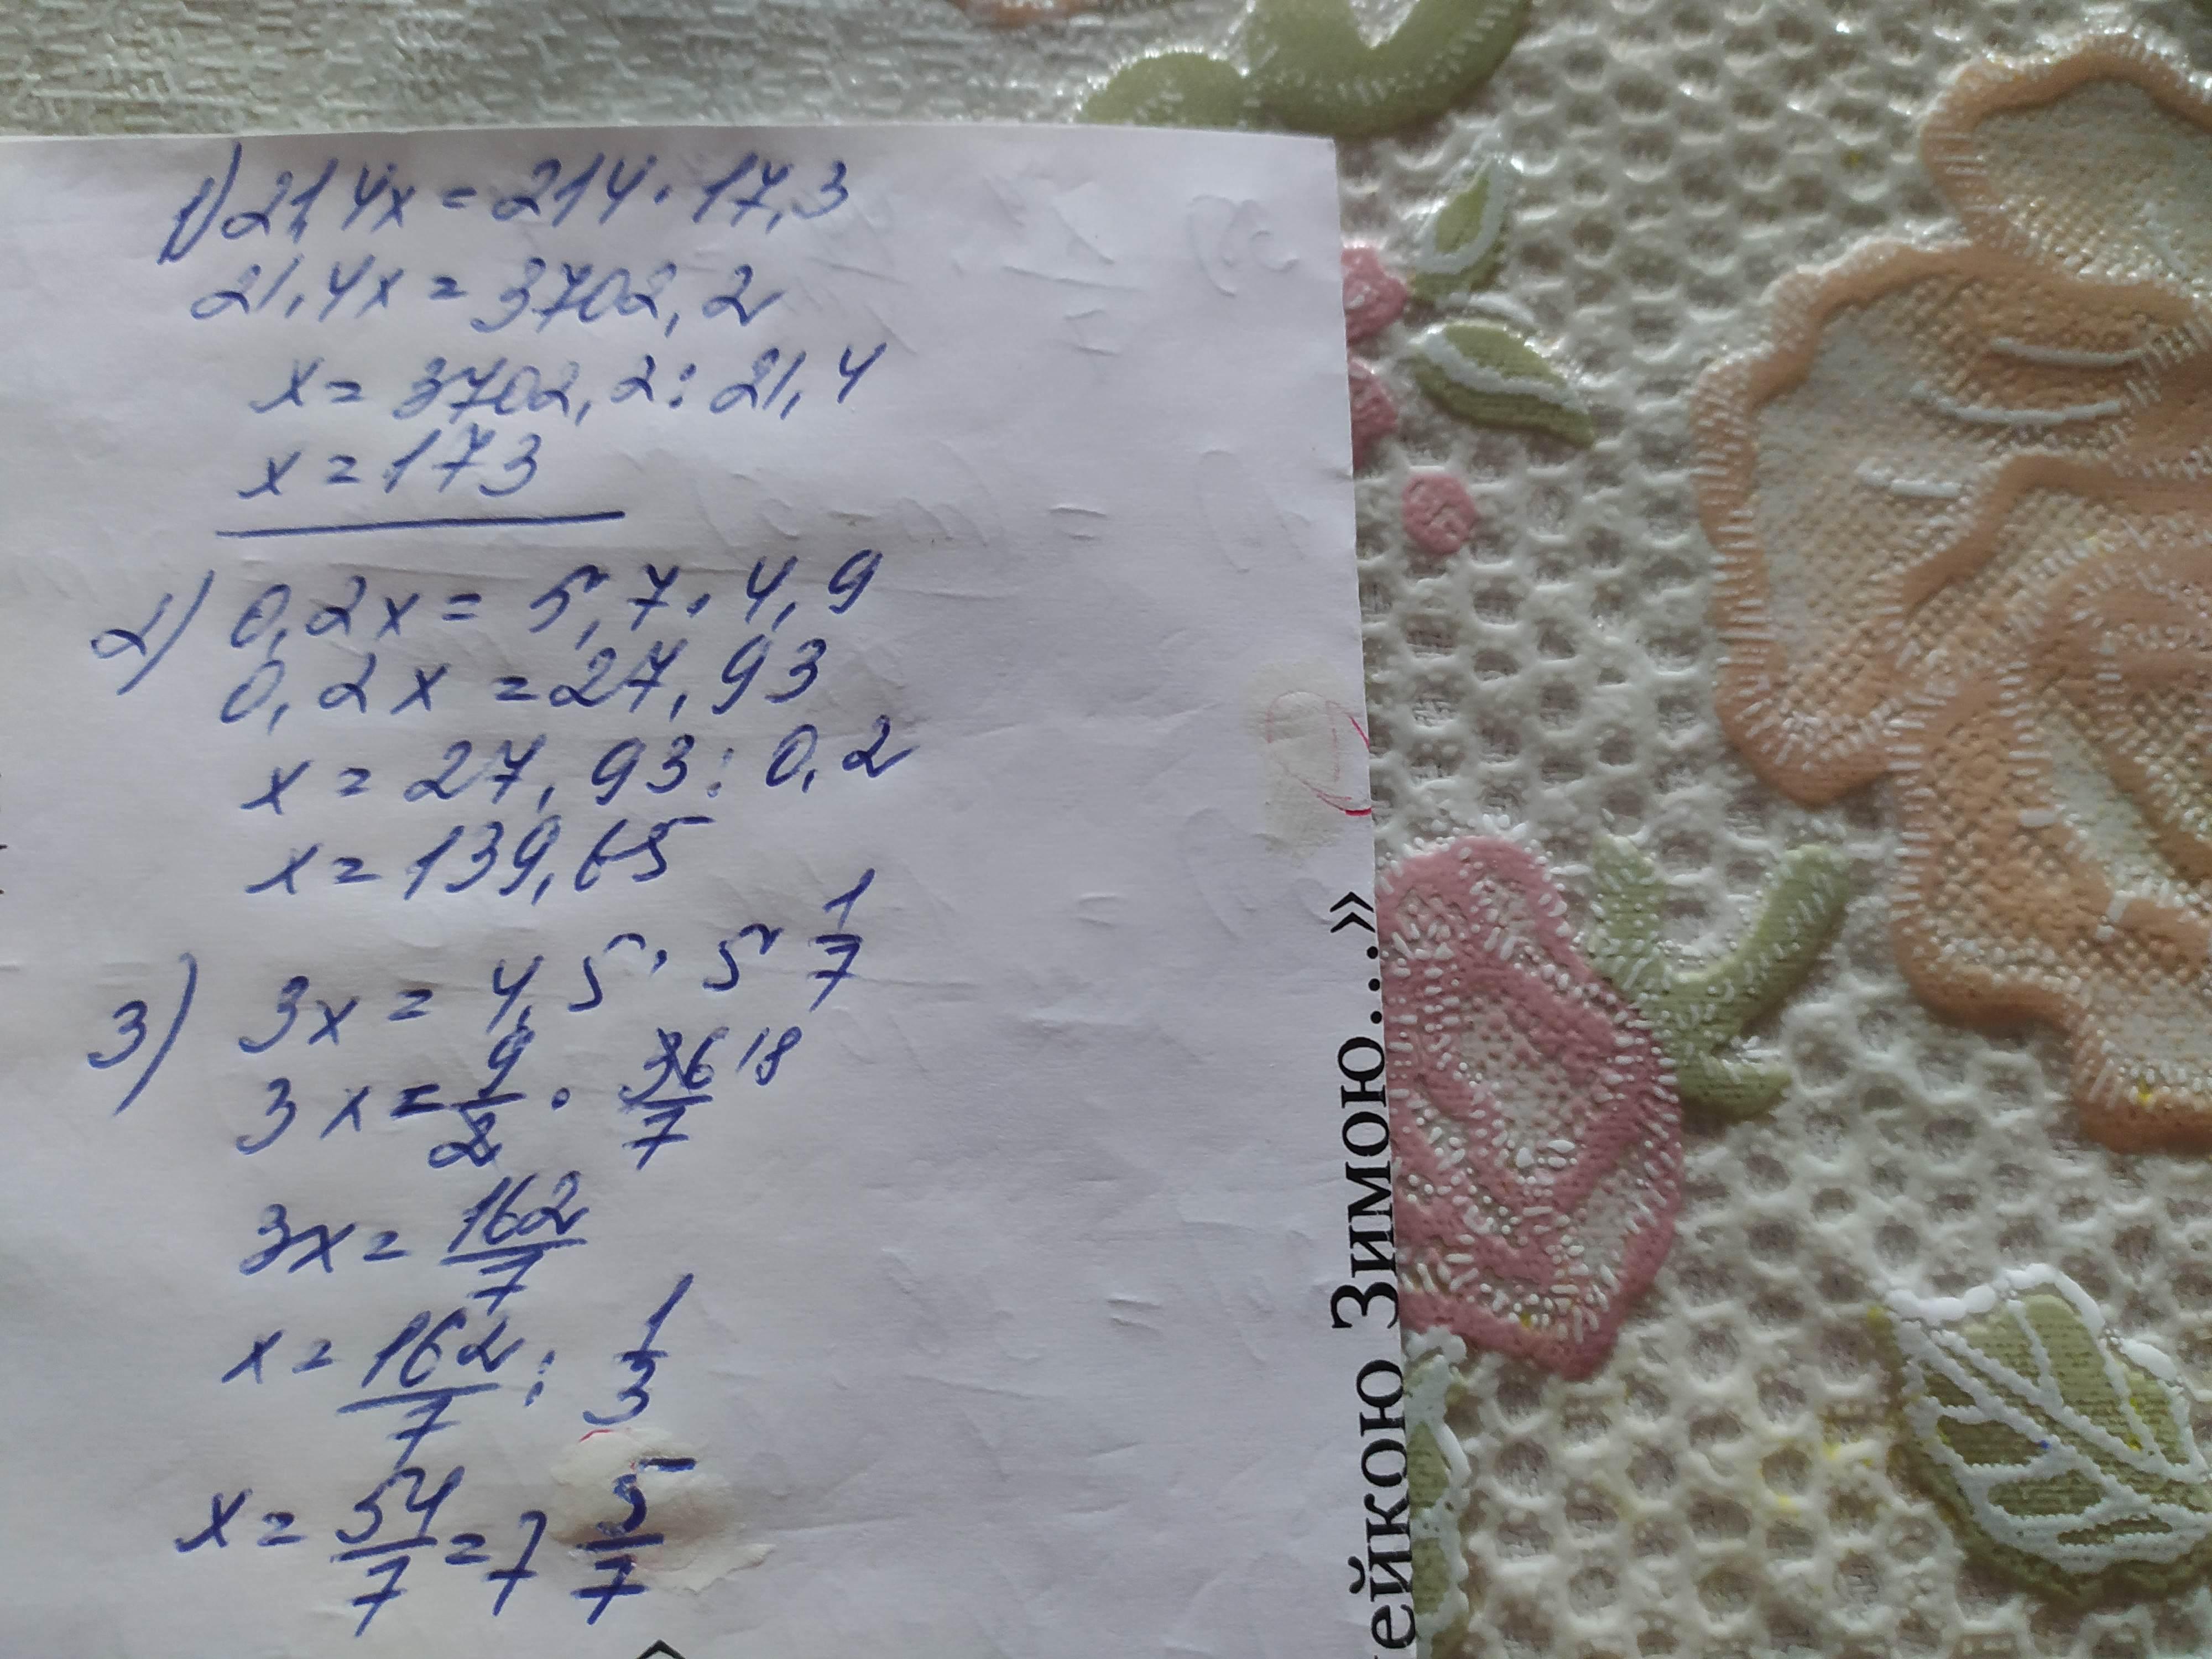 1) 21,4x = 214 · 17,3
21,4x = 3702,2
x = 3702,2 : 21,4
x = 173
2) 0,2x = 5,7 · 4,9
0,2x = 27,93
x = 27,93 : 0,2
x = 139,65
3) 3x = 4,5 · 5 1/7
3x = 9/2 · 36/7 18
3x = 162/7
x = 162/7 : 1/3
x = 54/7 = 7 5/7
Зимою...»